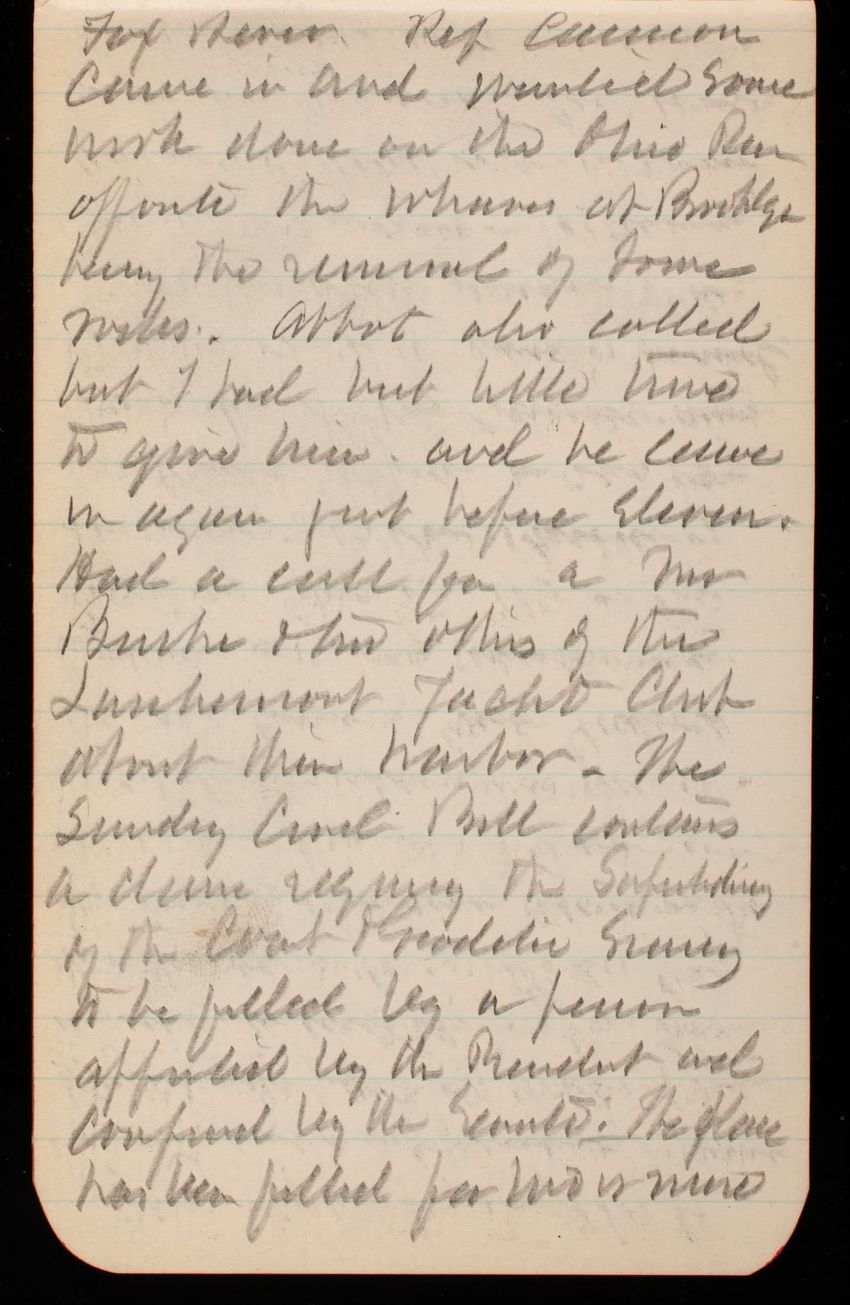 Fox River. Rep Cannon
came in and wanted some
work done on the Ohio River
opposite the wharves at
being the removal of some
rocks. Abbot also called
but I had but little time
to give him. and he came
in again just before Eleven.
Had a call from a Mr
Burke & two others of the
Larchemont Yacht Club
about their harbor - The
Sunday Civil Bill contains
a clause requiring the
of the Coast & Geodetic Survey
to be filled by a person
appointed by the President and
confirmed by the Senate. The place
has been filled for two or more